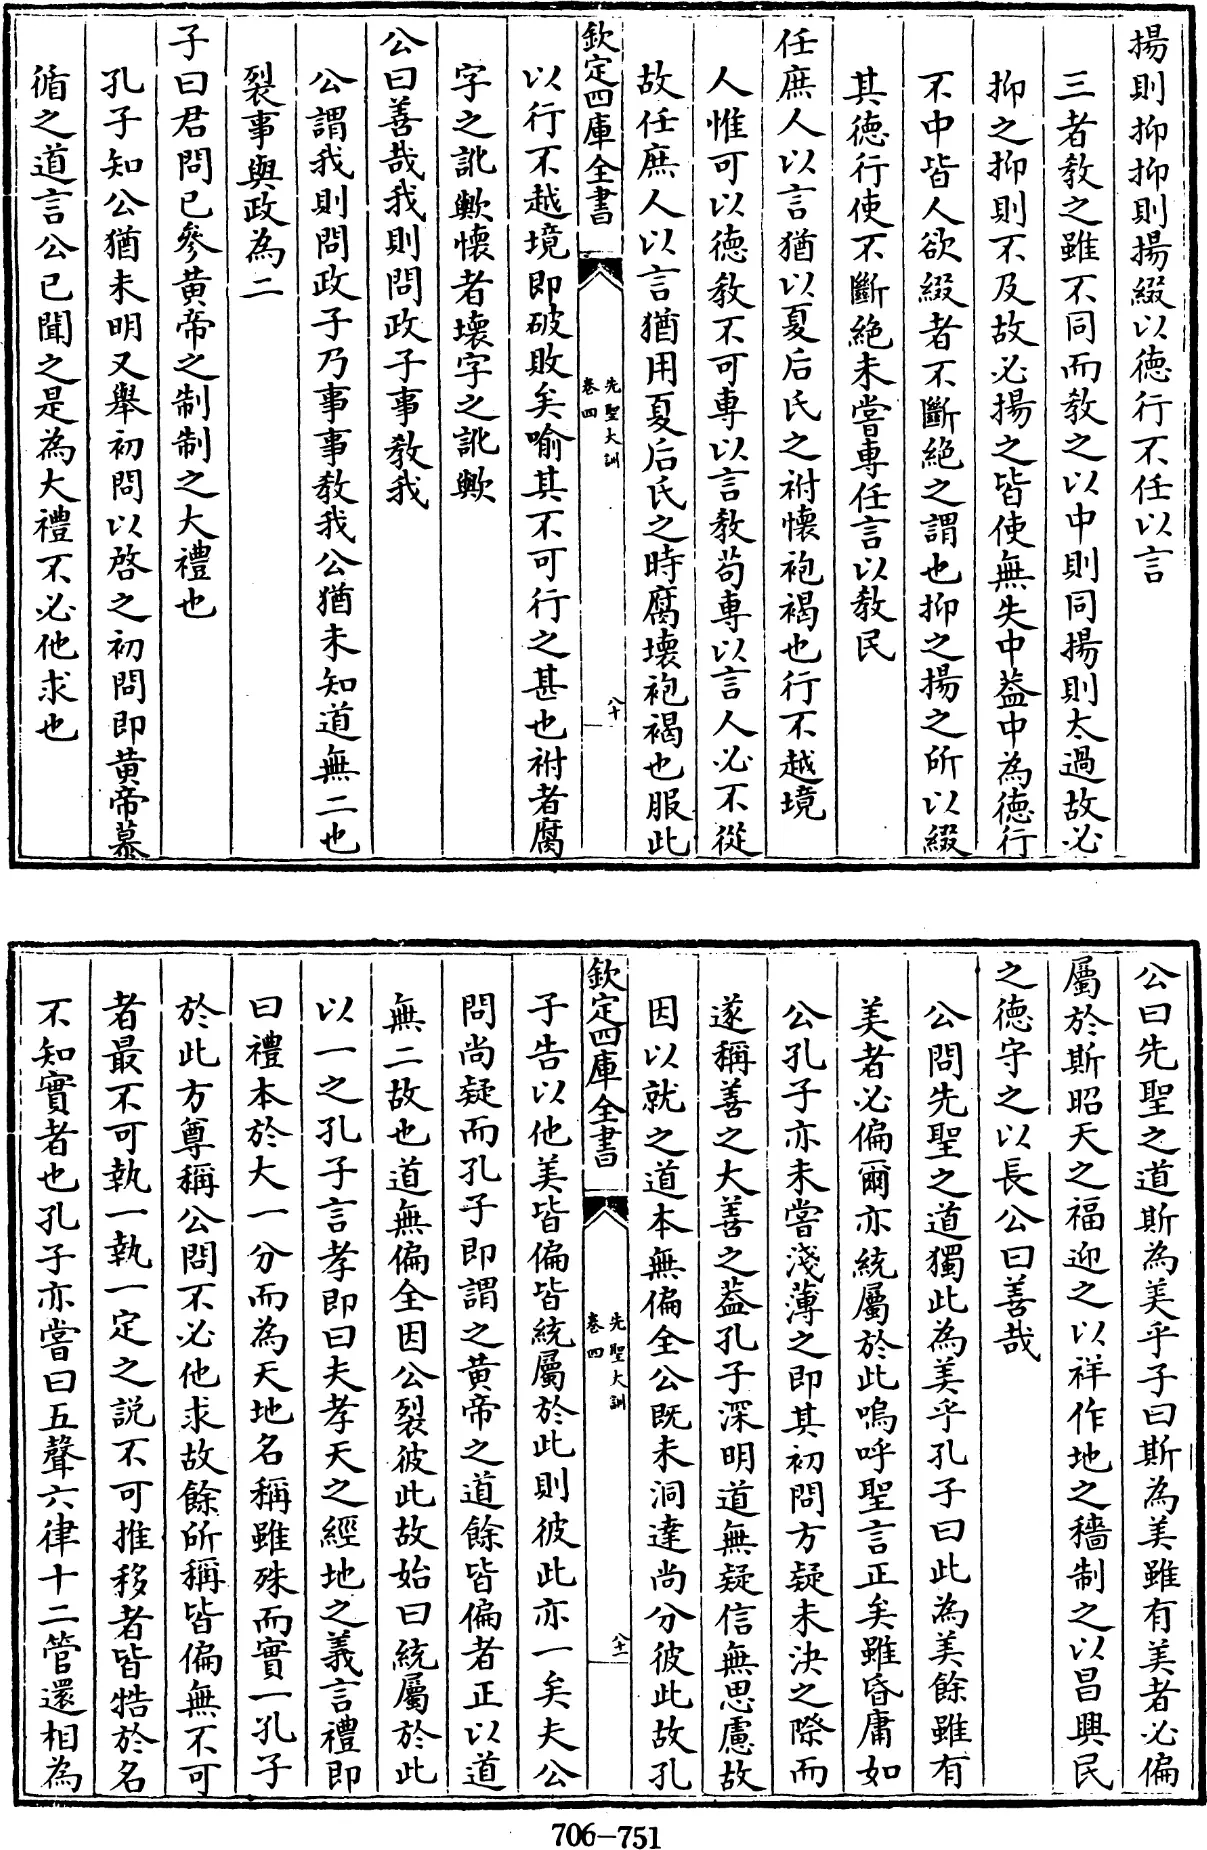 揚則抑抑則揚綴以徳行不任以言
三者教之雖不同而教之以中則同揚則太過故必
抑之抑則不及故必揚之皆使無失中葢中為徳行
不中皆人欲綴者不斷絶之謂也抑之揚之所以綴
其徳行使不斷絶未嘗專任言以教民
任庶人以言猶以夏后氏之祔懷袍褐也行不越境
人惟可以徳教不可專以言教苟專以言人必不從
故任庶人以言猶用夏后氏之時腐壊袍褐也服此
欽定四庫全書
先聖大訓
卷四
八十
以行不越境即破敗矣喻其不可行之甚也祔者腐
字之訛歟懷者壊字之訛歟
公曰善哉我則問政子事教我
公謂我則問政子乃事事教我公猶未知道無二也
裂事與政為二
子曰君問已參黄帝之制制之大禮也
孔子知公猶未明又舉初問以啓之初問即黄帝慕
循之道言公已聞之是為大禮不必他求也
公曰先聖之道斯為美乎子曰斯為美雖有美者必偏
屬於斯昭天之福迎之以祥作地之穡制之以昌興民
之徳守之以長公曰善哉
公問先聖之道獨此為美乎孔子曰此為美餘雖有
美者必偏爾亦統屬於此嗚呼聖言正矣雖昏庸如
公孔子亦未嘗淺薄之即其初問方疑未決之際而
遂稱善之大善之葢孔子深明道無疑信無思慮故
因以就之道本無偏全公既未洞達尚分彼此故孔
欽定四庫全書
先聖大訓
卷四
八十一
子告以他美皆偏皆統屬於此則彼此亦一矣夫公
問尚疑而孔子即謂之黄帝之道餘皆偏者正以道
無二故也道無偏全因公裂彼此故始曰統屬於此
以一之孔子言孝即曰夫孝天之經地之義言禮即
曰禮本於大一分而為天地名稱雖殊而實一孔子
於此方尊稱公問不必他求故餘所稱皆偏無不可
者最不可執一執一定之説不可推移者皆牿於名
不知實者也孔子亦嘗曰五聲六律十二管還相為
706-751